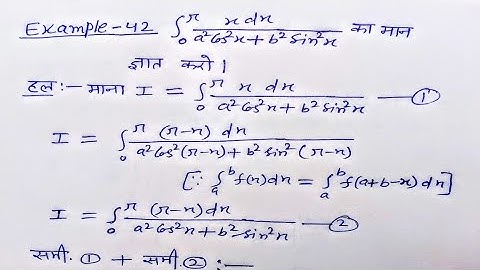 Example-42 ∫₀^π x dx / (a²cos²x + b²sin²x) का मान
ज्ञात करो।
हल:- माना I = ∫₀^π x dx / (a²cos²x + b²sin²x) —— ①
I = ∫₀^π (π-x) dx / (a²cos²(π-x) + b²sin²(π-x))
[∵ ∫ₐᵇ f(x)dx = ∫ₐᵇ f(a+b-x)dx]
I = ∫₀^π (π-x)dx / (a²cos²x + b²sin²x) —— ②
समी. ① + समी. ② :—